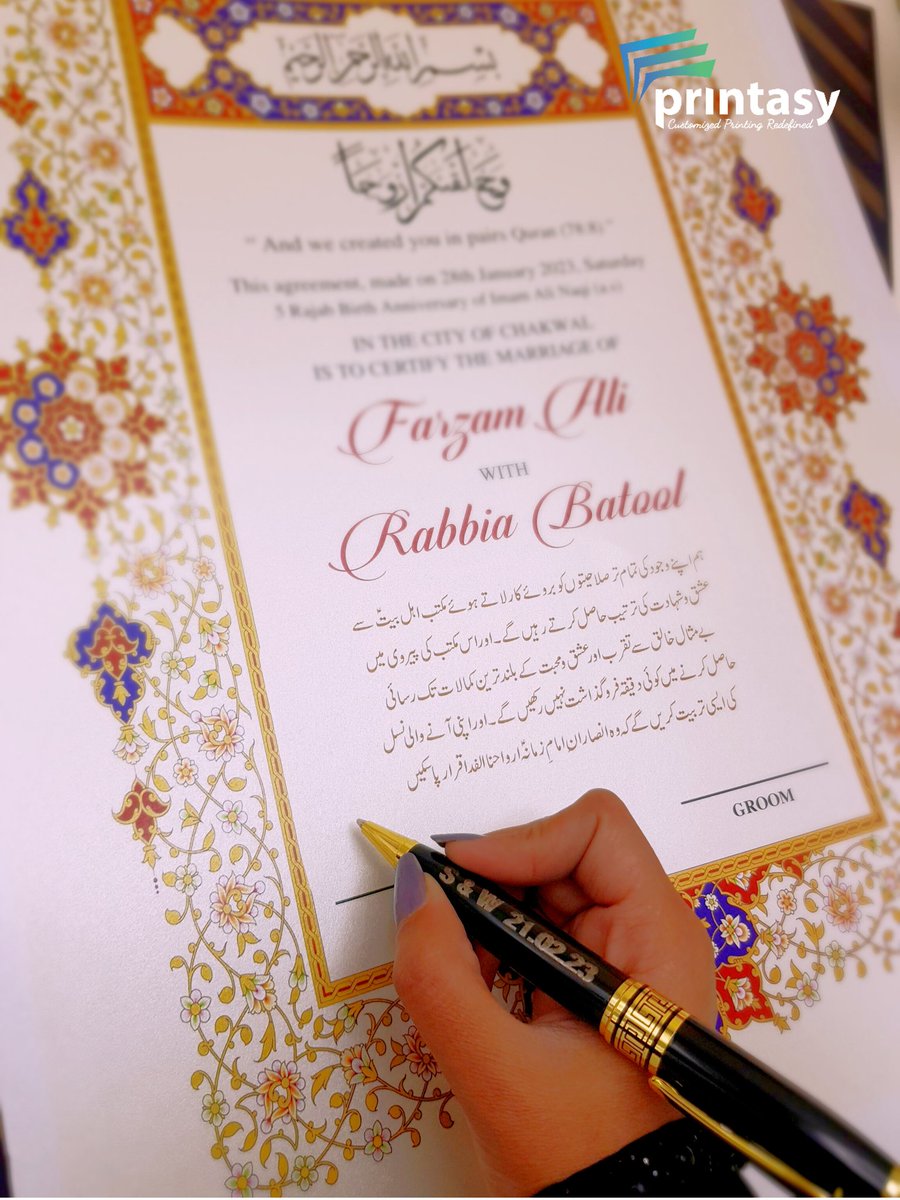 printasy
Customized Printing Redefined
بسم الله الرحمن الرحيم
وخلقنكم ازواجا
“ And we created you in pairs Quran (78:8) ”
This agreement, made on 28th January 2023, Saturday
5 Rajab Birth Anniversary of Imam Ali Naqi (a.s)
IN THE CITY OF CHAKWAL
IS TO CERTIFY THE MARRIAGE OF
Farzam Ali
WITH
Rabbia Batool
ہم اپنے وجود کی تمام تر صلاحیتوں کو بروئے کار لاتے ہوئے مکتب اہل بیتؑ سے
عشق و شہادت کی ترتیب حاصل کرتے رہیں گے۔ اور اس مکتب کی پیروی میں
بے مثال خالق سے تقرب اور عشق و محبت کے بلند ترین کمالات تک رسائی
حاصل کرنے میں کوئی دقیقہ فروگذاشت نہیں رکھیں گے۔ اور اپنی آنے والی نسل
کی ایسی تربیت کریں گے کہ وہ انصاران امامِ زمانہؑ ارواحنا الفدا قرار پا سکیں
GROOM
S & W 21.02.23